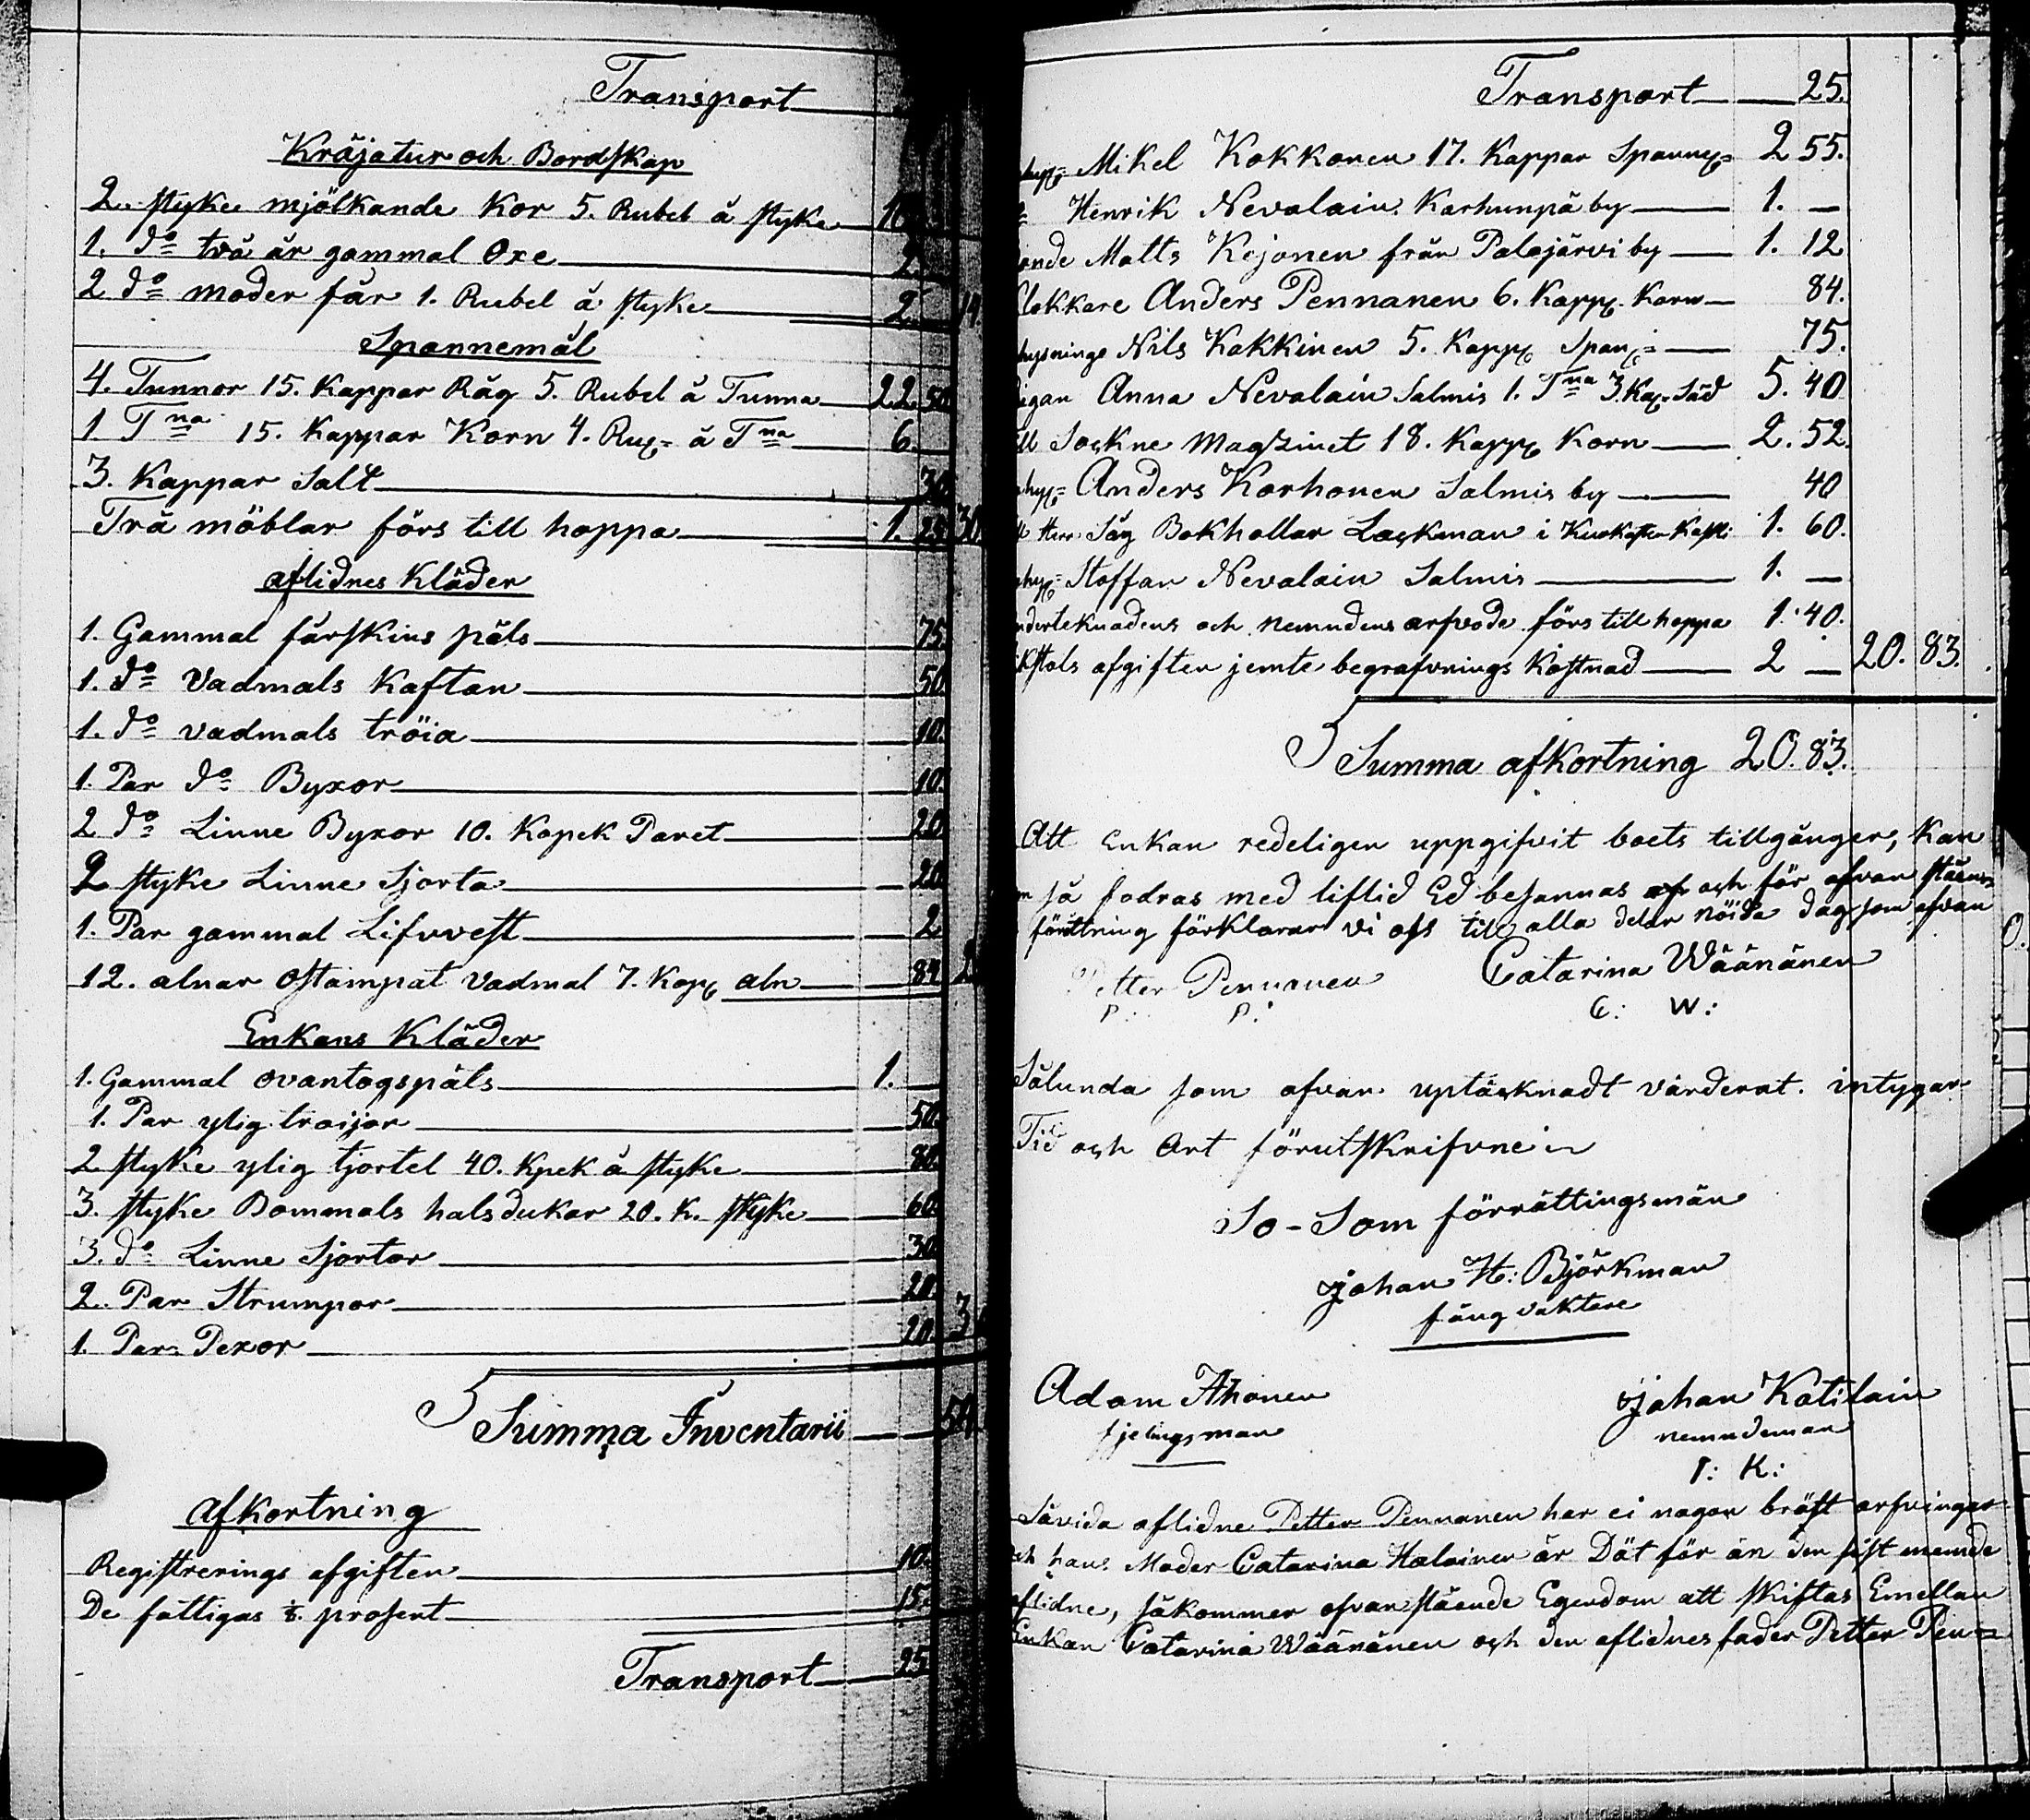 Transport
Kräjatur och Bordskap
2. styke mjölkande Kor 5. Rubel á styke 10
1. do två år gammal Oxe 2.
2 do moder får 1. Rubel á styke 2. 14.
Spannemål
4. Tunnor 15. Kappar Råg 5. Rubel á Tunna 22. 50
1 Tna 15. Kappar Korn 4. Ru á Tna 6.
3. Kappar Salt 30.
Trä möblar förs till hoppa 1. 25 30
aflidnes Kläder
1. Gammal fårskins päls 75.
1. do Vadmals Kaftan 50
1. do vadmals tröia 10.
1. Par do Byxor 10.
2 do Linne Byxor 10. Kopek Paret 20
2 styke Linne Sjorta 20
1. Par gammal Lifvvest 2
12. alnar ostampat Vadmal 7. Kop aln 84 2
Enkans Kläder
1. Gammal ovantogspäls 1.
1. Par ylig troijor 50.
2 styke ylig tjortel 40. Kpek á styke 80.
3. styke Bommals halsdukar 20. K. styke 60.
3. do Linne Sjortor 30
2. Par Strumpor 20.
1. Par Pexor 20. 3
Summa Inventarii
Afkortning
Registrerings afgiften 10.
De fattigas 1/8. prosent 15.
Transport 25
Transport 25.
Mikel Kokkonen 17. Kappar Spanne 2 55.
Henrik Nevalain Karhunpä by 1. —
onde Matts Kejonen från Palojärvi by 1. 12
Clokkare Anders Pennanen 6. Kapp Korn 84.
hysninge Nils Kakkinen 5. Kapp Span 75.
igan Anna Nevalain Salmis 1. Tna 3. Kap Säd 5. 40
ill Sokne Magzinet 18. Kapp Korn 2. 52.
Anders Korhonen Salmis by 40
Herr Såg Bokhollar Lackman i 1. 60.
Stoffan Nevalain Salmis 1. —
nderteknadens och nemndens arfvode förs till hoppa 1. 40.
ikstols afgiften jemte begrafvnings Kostnad 2 — 20. 83.
Summa afkortning 20. 83.
Att Enkan redeligen uppgifvit boets tillgånger, Kan
så fodras med liflid Ed besannas och för ofvan stäen=
förättning förklarar vi oss till alla delar nöida dag som ofvan
Petter Pennanen Catarina Wäänänen
P: P: C: W:
Sålunda som ofvan uptäcknadt värderat. intygar
Tid och Ort förutskrifvne
So-Som förrättingsmän
Johan H: Björkman
fång vaktare
Adam Ahonen Johan Katilain
fjelingsman nemndeman
I: K:
Såvida aflidne Petter Pennanen har ei nagon bröst arfvingar
och hans Moder Catarina Halainen är Döt för än den sist nemnde
aflidne, såkommer ofvanstäende Egendom att skiftas Emellan
Enkan Catarina Wäänänen och den aflidnes fader Petter Pen=